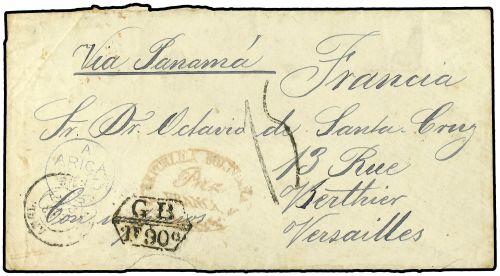 Via Panamá
Francia
Sr. Dr. Octavio de Santa Cruz
13 Rue
Berthier
Versailles
15
A
ARICA
REPUBLICA BOLIVIANA
Paz
GB
1F90c
Con